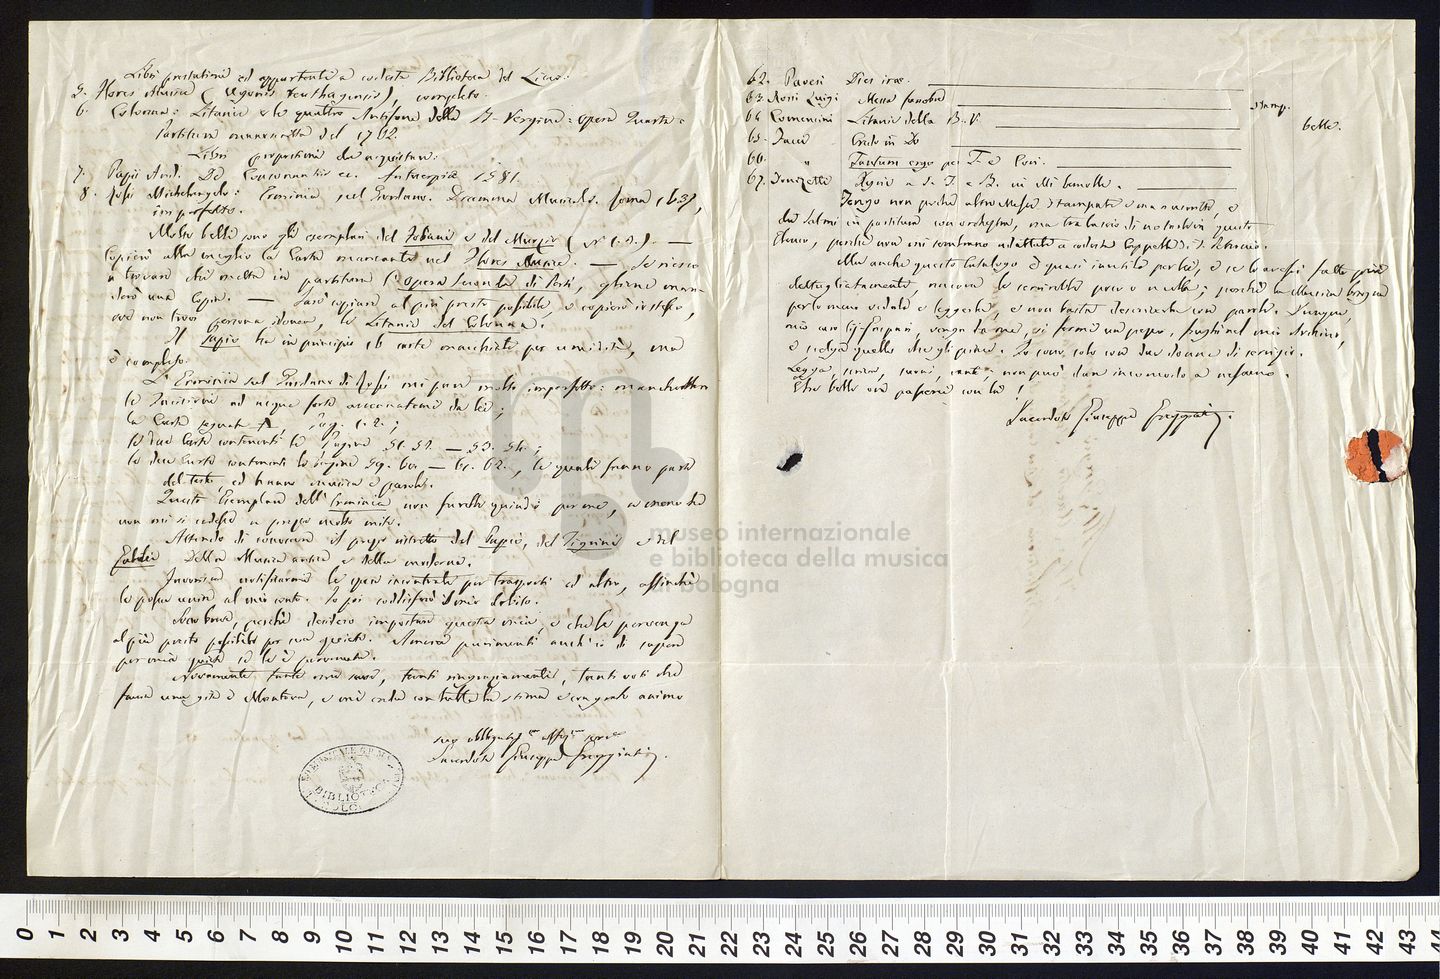 Libri prestatimi ed appartenenti a codesta Biblioteca del Liceo:
5. Flores Musice (Ugonis Reuthagensis), completo.
6. Colonna: Litanie e le quattro Antifone della B. Vergine: Opera Quarta:
Partitura manoscritta del 1762.
Libri per
7. Papii And. De Consonantiis ec. Antuerpiæ 1581.
8. Rossi Michelangelo: Erminia sul Giordano. Dramma Musicale. Roma 1637,
imperfetto.
Molto belli sono gli esemplari del e del —
Copierò alla meglio la Carta mancante nel Flores Musice. — Se riesco
a trovare chi metta in partitura l'Opera Seconda di gliene man-
derò una copia. — Farò copiare al più presto possibile, o copierò io stesso,
ove non trovi persona idonea, le Litanie del Colonna.
Il Papio ha in principio 16 carte macchiate per umidità, ma
è completo.
L'Erminia sul Giordano di Rossi mi pare molto imperfetta:
le Incisioni ad acqua forte accennatemi da lei;
la Carta segnata A, pag. 1. 2.;
le due Carte contenenti le Pagine 51. 52. — 53. 54.;
le due Carte contenenti le pagine 59. 60. — 61. 62., le quali fanno parte
del testo, ed hanno musica e parole.
Questo Esemplare dell'Erminia non farebbe quindi per me, a meno che
non mi si cedesse a prezzo molto mite.
Attendo di conoscere il prezzo ristretto del Papio, del Tigrini e del
della Musica antica e della moderna.
le possa unire al mio conto. Io poi soddisferò il mio debito.
perchè desidero importare questa mia, e che le pervenga
al più presto possibile per sua quiete. Amerei parimenti anch'io di sapere
per mia quiete se le è pervenuta.
Novamente tante cose care, tanti ringraziamenti, tanti voti che
faccia una gita a Mantova, e mi creda con tutta la stima e con grato animo
suo obbligatiss.mo affez.mo servo
Sacerdote Giuseppe Greggiati.
BIBLIOTECA
62. Pavesi Dies iræ.
63. Rossi Luigi Messa funebre
stamp.
64 Comencini Litanie della B. V.
belle.
65. Credo in Do
66. " Tantum ergo per T. e Cori.
67. Donizetti Kyrie a S. T. e B. in Mi bemolle.
Tengo non poche altre Messe stampate e manoscritte, e
dei Salmi in partitura con orchestra, ma tralascio di notarli in questo
Elenco, perchè non mi sembrano adattate a codesta Cappella di S. Petronio.
Ma anche questo Catalogo è quasi inutile perchè, e se lo avessi fatto più
dettagliatamente, ancora le servirebbe poco o nulla; perchè la Musica bisogna
per lo meno vederla e leggerla, e non basta descriverla con parole. Dunque,
mio caro Sig. Gaspari, venga da me, si fermi un pezzo, frughi nel mio Archivio,
e scelga quello che gli piace. Io sono solo con due donne di servizio.
Legga, scriva, suoni, canti, non può dare incomodo a nessuno.
Che belle ore passerei con lei!
Sacerdote Giuseppe Greggiati.
museo internazionale
e biblioteca della musica
di bologna
0 1 2 3 4 5 6 7 8 9 10 11 12 13 14 15 16 17 18 19 20 21 22 23 24 25 26 27 28 29 30 31 32 33 34 35 36 37 38 39 40 41 42 43 44